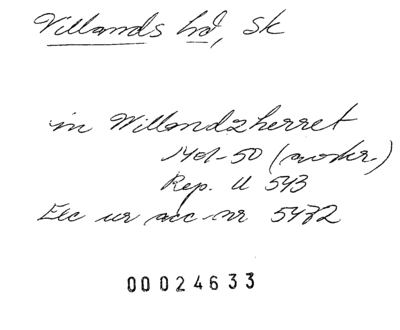 Villands hd, Sk
in Willandzherret
1401-50 (avskr.)
Rep. U 543
Exc ur acc-nr 5472
00024633